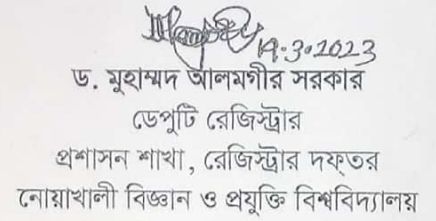 19.3.2023
ড. মুহাম্মদ আলমগীর সরকার
ডেপুটি রেজিস্ট্রার
প্রশাসন শাখা, রেজিস্ট্রার দফ্তর
নোয়াখালী বিজ্ঞান ও প্রযুক্তি বিশ্ববিদ্যালয়